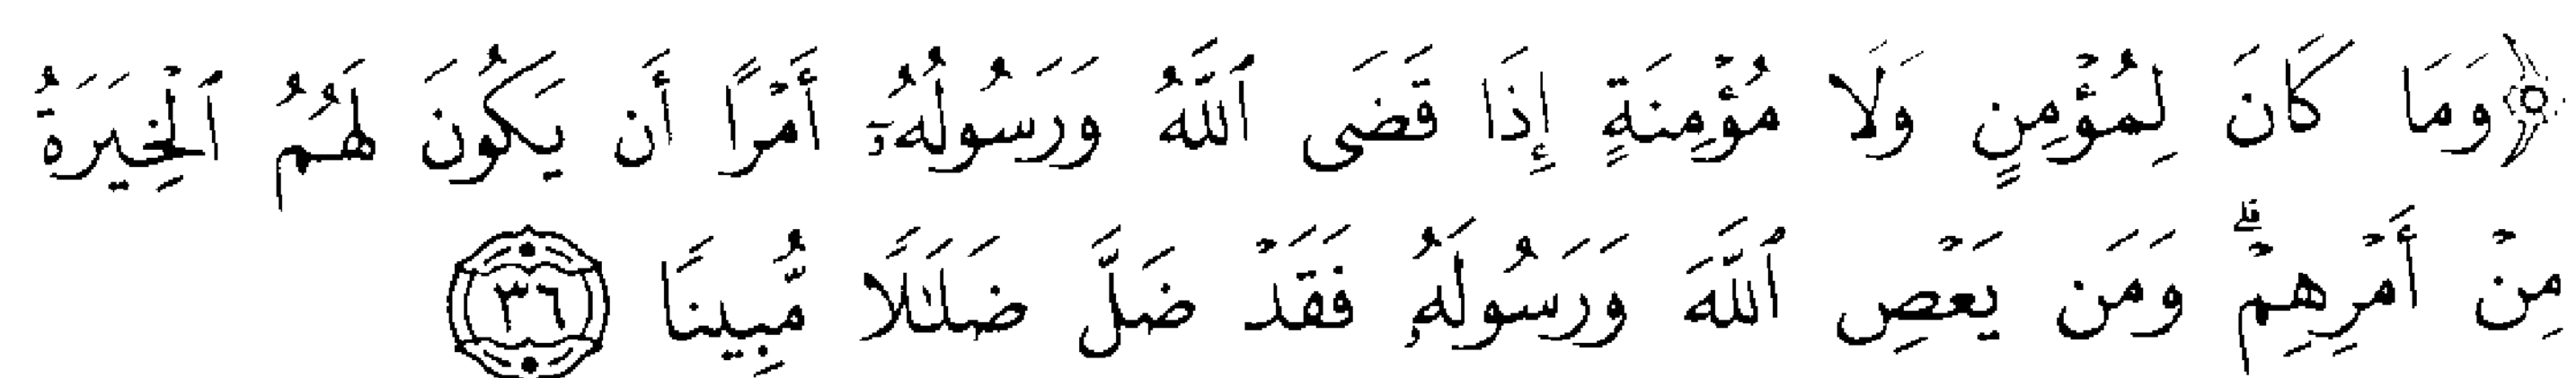 ۞وَمَا كَانَ لِمُؤْمِنٍ وَلَا مُؤْمِنَةٍ إِذَا قَضَى ٱللَّهُ وَرَسُولُهُۥٓ أَمْرًا أَن يَكُونَ لَهُمُ ٱلْخِيَرَةُ
مِنْ أَمْرِهِمْ ۗ وَمَن يَعْصِ ٱللَّهَ وَرَسُولَهُۥ فَقَدْ ضَلَّ ضَلَـٰلًا مُّبِينًا ٣٦